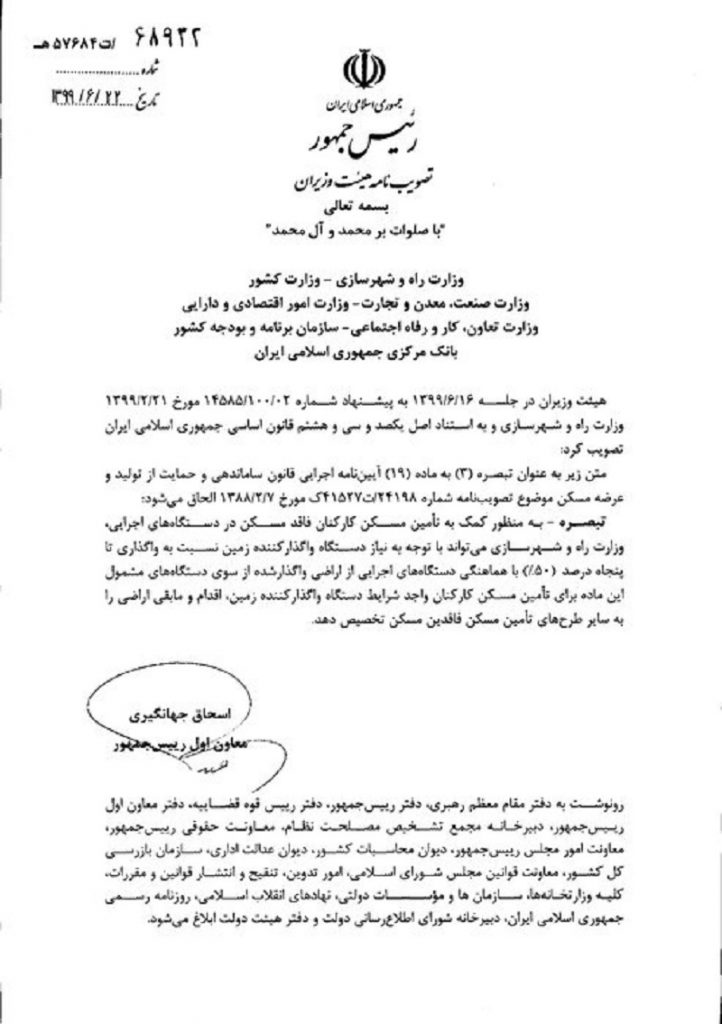 ۶۸۹۲۲ /ت۵۷۶۸۴هـ
شماره
تاریخ ۱۳۹۹/۶/۲۲
جمهوری اسلامی ایران
رئیس جمهور
تصویب نامه هیئت وزیران
بسمه تعالی
"با صلوات بر محمد و آل محمد"
وزارت راه و شهرسازی - وزارت کشور
وزارت صنعت، معدن و تجارت- وزارت امور اقتصادی و دارایی
وزارت تعاون، کار و رفاه اجتماعی- سازمان برنامه و بودجه کشور
بانک مرکزی جمهوری اسلامی ایران
هیئت وزیران در جلسه ۱۳۹۹/۶/۱۶ به پیشنهاد شماره ۱۴۵۸۵/۱۰۰/۰۲ مورخ ۱۳۹۹/۲/۲۱
وزارت راه و شهرسازی و به استناد اصل یکصد و سی و هشتم قانون اساسی جمهوری اسلامی ایران
تصویب کرد:
متن زیر به عنوان تبصره (۳) به ماده (۱۹) آیین‌نامه اجرایی قانون ساماندهی و حمایت از تولید و
عرضه مسکن موضوع تصویب‌نامه شماره ۲۴۱۹۸/ت۴۱۵۲۷ک مورخ ۱۳۸۸/۲/۷ الحاق می‌شود:
تبصره - به منظور کمک به تأمین مسکن کارکنان فاقد مسکن در دستگاه‌های اجرایی،
وزارت راه و شهرسازی می‌تواند با توجه به نیاز دستگاه واگذارکننده زمین نسبت به واگذاری تا
پنجاه درصد (۵۰٪) با هماهنگی دستگاه‌های اجرایی از اراضی واگذارشده از سوی دستگاه‌های مشمول
این ماده برای تأمین مسکن کارکنان واجد شرایط دستگاه واگذارکننده زمین، اقدام و مابقی اراضی را
به سایر طرح‌های تأمین مسکن فاقدین مسکن تخصیص دهد.
اسحاق جهانگیری
معاون اول رییس‌جمهور
رونوشت به دفتر مقام معظم رهبری، دفتر رییس‌جمهور، دفتر رییس قوه قضاییه، دفتر معاون اول
رییس‌جمهور، دبیرخانه مجمع تشخیص مصلحت نظام، معاونت حقوقی رییس‌جمهور،
معاونت امور مجلس رییس‌جمهور، دیوان محاسبات کشور، دیوان عدالت اداری، سازمان بازرسی
کل کشور، معاونت قوانین مجلس شورای اسلامی، امور تدوین، تنقیح و انتشار قوانین و مقررات،
کلیه وزارتخانه‌ها، سازمان ها و مؤسسات دولتی، نهادهای انقلاب اسلامی، روزنامه رسمی
جمهوری اسلامی ایران، دبیرخانه شورای اطلاع‌رسانی دولت و دفتر هیئت دولت ابلاغ می‌شود.